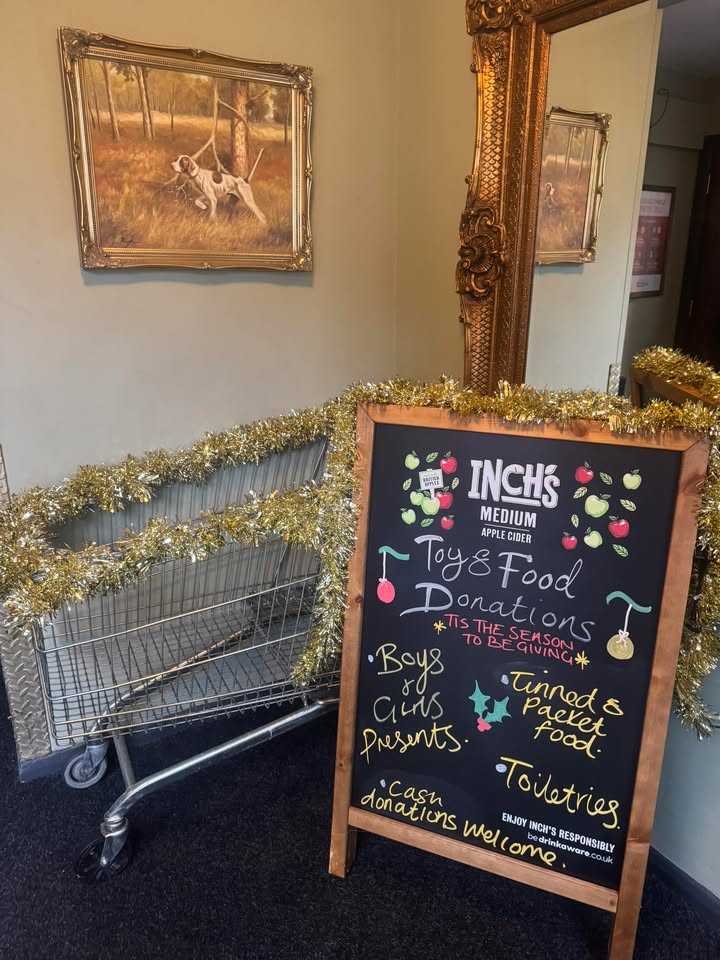 BRITISH
APPLES
INCH'S
MEDIUM
APPLE CIDER
Toy & Food
Donations
TIS THE SEASON
TO BE GIVING
• Boys
&
Girls
Presents.
• Tinned &
Packet
food.
• Toiletries.
• Cash
donations welcome.
ENJOY INCH'S RESPONSIBLY
be drinkaware.co.uk